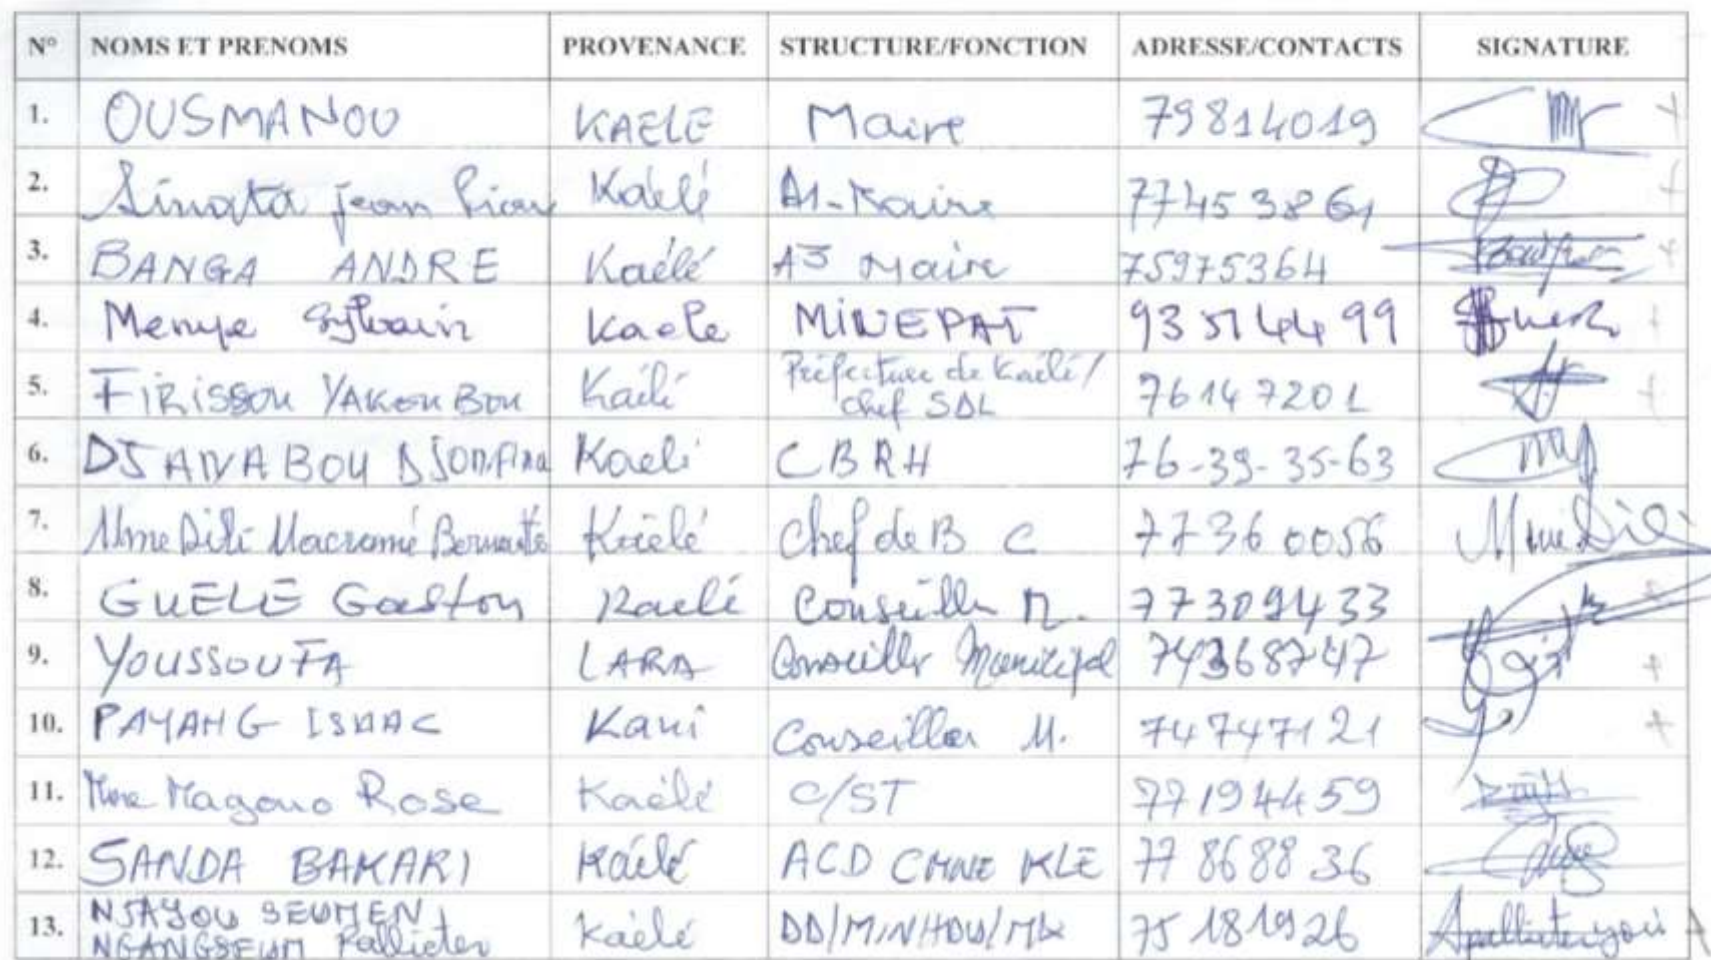 N° NOMS ET PRENOMS PROVENANCE STRUCTURE/FONCTION ADRESSE/CONTACTS SIGNATURE
1. OUSMANOU KAELE Maire 79814019
2. Sinata Jean Kaélé A1-Maire 77453861
3. BANGA ANDRE Kaélé A3 Maire 75975364
4. Menye Sylvain Kaele MINEPAT 93514499
5. FIRISSOU YAKOUBOU Kaélé Préfecture de Kaélé/
Chef SDL 76147201
6. DJANABOU Kaelé CBRH 76-39-35-63
7. Mme Dili Kaélé Chef de B C 77360056 Mme Dili
8. GUELE Gaston Kaelé Conseiller M. 77309433
9. YOUSSOUFA LARA Conseiller Municipal 74368747
10. PAYANG ISAAC Kani Conseiller M. 74747121
11. Mme Magouo Rose Kaélé C/ST 77194459
12. SANDA BAKARI Kaélé ACD CMNE KLE 77868836
13. NJAYOU SEUMEN
NGANGSEUM Pallieter Kaélé DD/MINHDU/MK 75181926